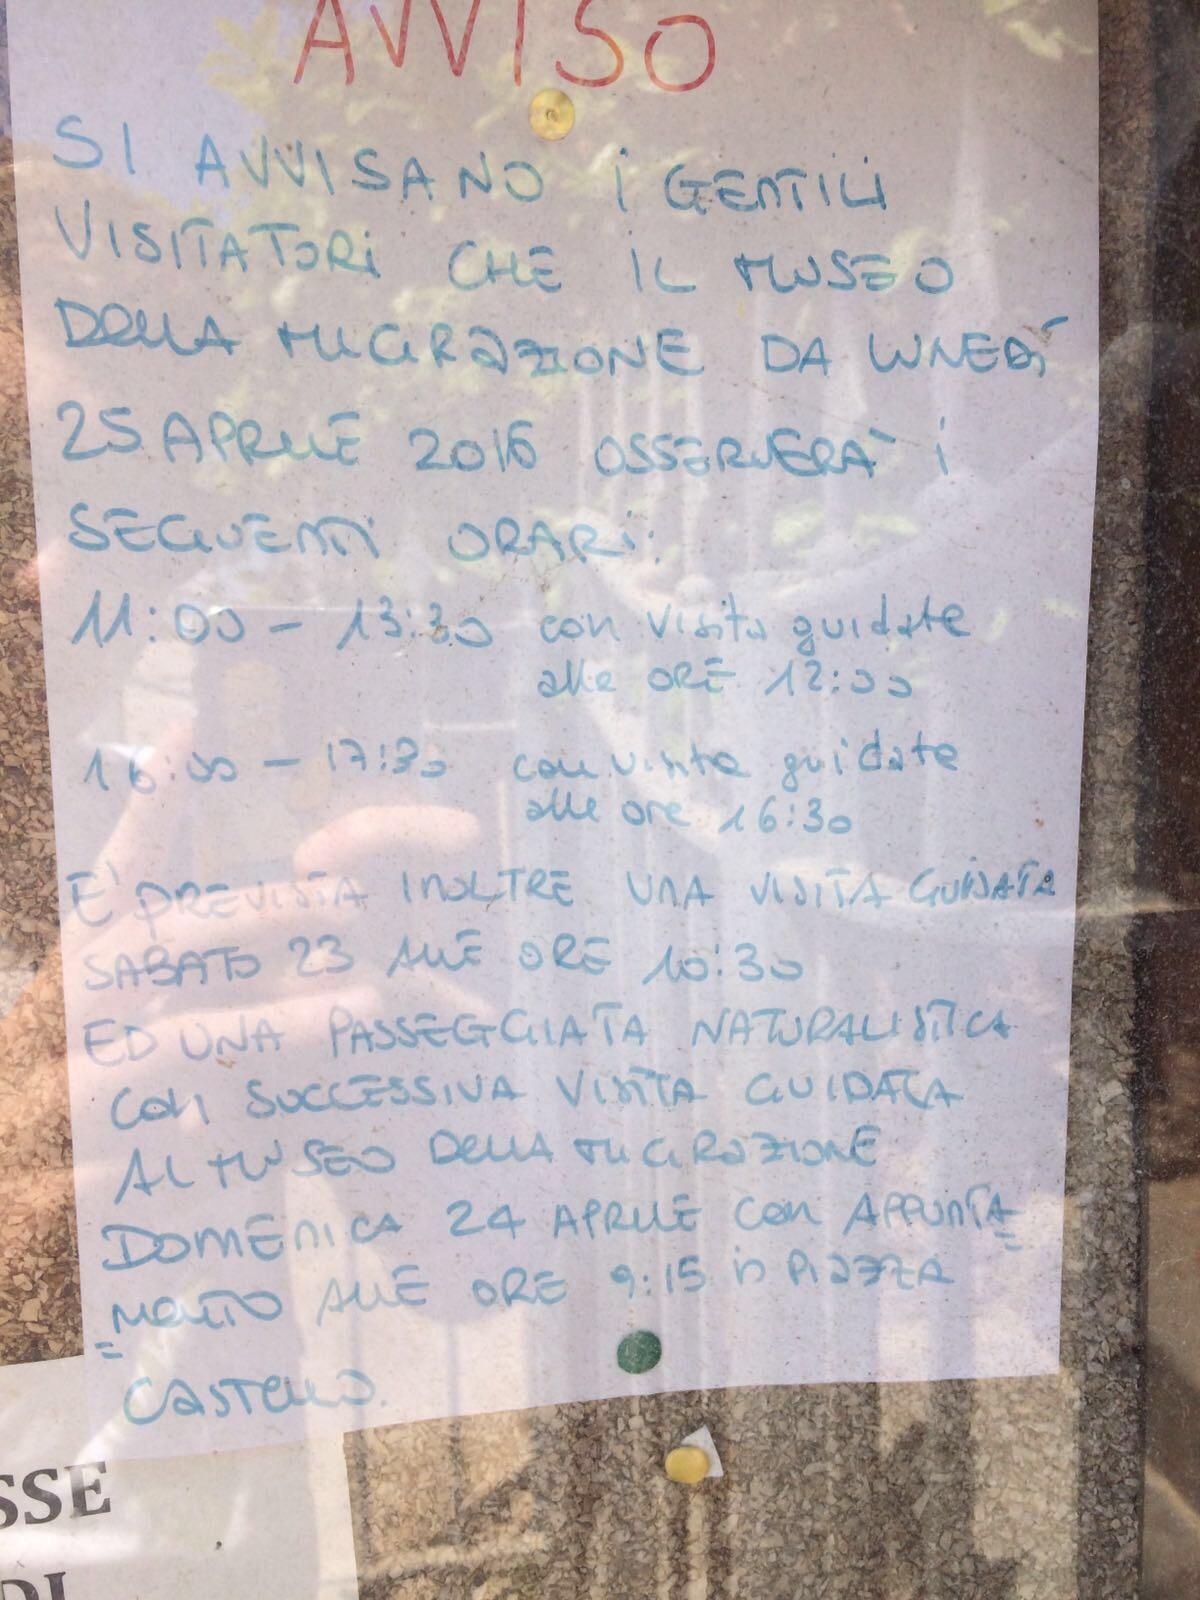 AVVISO
SI AVVISANO I GENTILI
VISITATORI CHE IL MUSEO
DELLA MIGRAZIONE DA LUNEDÌ
25 APRILE 2016 OSSERVERÀ I
SEGUENTI ORARI:
11:00 - 13:30 con visita guidate
alle ORE 12:00
16:00 - 17:30 con visite guidate
alle ore 16:30
E' PREVISTA INOLTRE UNA VISITA GUIDATA
SABATO 23 ALLE ORE 10:30
ED UNA PASSEGGIATA NATURALISTICA
CON SUCCESSIVA VISITA GUIDATA
AL MUSEO DELLA MIGRAZIONE
DOMENICA 24 APRILE CON APPUNTA=
=MENTO ALLE ORE 9:15 in PIAZZA
CASTELLO.
SSE
DI